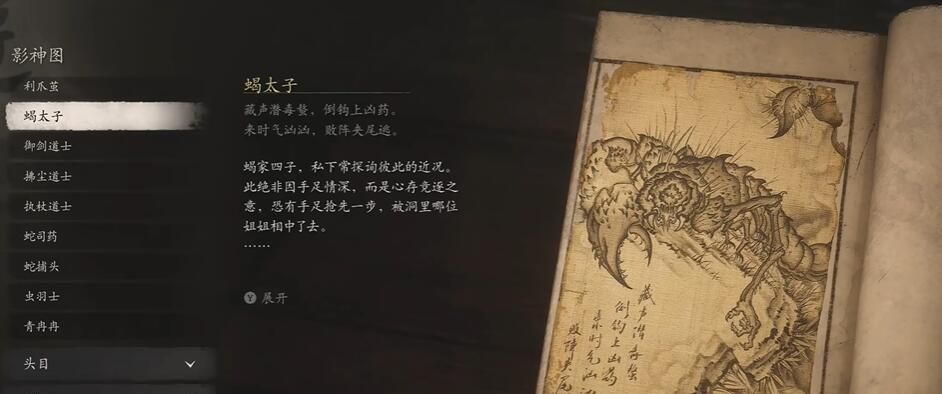 影神图
利爪茧
蝎太子
御剑道士
拂尘道士
执杖道士
蛇司药
蛇捕头
虫羽士
青冉冉
头目
蝎太子
藏声潜毒螫，倒钩上凶药。
来时气汹汹，败阵夹尾逃。
蝎家四子，私下常探询彼此的近况。
此绝非因手足情深，而是心存竞逐之
意，恐有手足抢先一步，被洞里哪位
姐姐相中了去。
……
Y 展开
藏声潜毒螫
倒钩上凶药
来时气汹汹
败阵夹尾